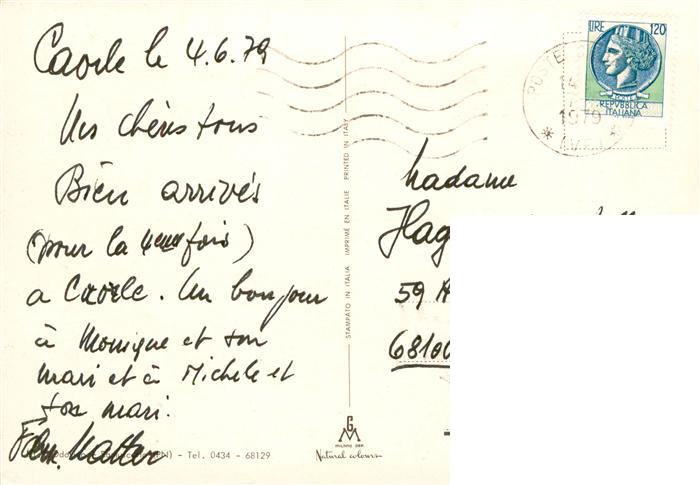 Caorle le 4.6.79
Mes chéris tous
Bien arrivés
(pour la 4eme fois)
a Caorle. Un bonjour
à Monique et son
mari et à Michele et
son mari.
Fam.
Madame
Hag
59
68100
LIRE 120
REPVBBLICA
ITALIANA
POSTE
1979
STAMPATO IN ITALIA IMPRIMÉ EN ITALIE PRINTED IN ITALY
MILANO DEP.
Natural colours
- Tel. 0434 - 68129